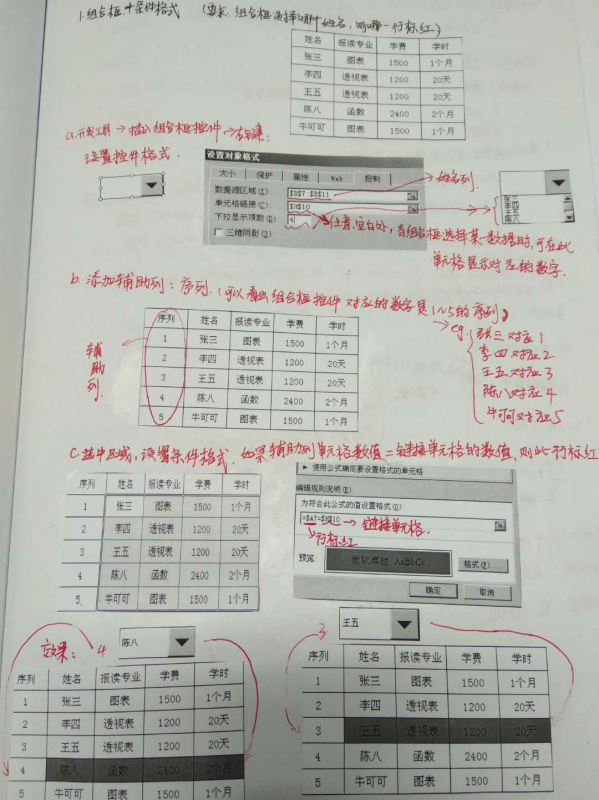 1.组合框+条件格式 (要求:组合框选择哪个姓名,哪一行标红)
姓名 报读专业 学费 学时
张三 图表 1500 1个月
李四 透视表 1200 20天
王五 透视表 1200 20天
陈八 函数 2400 2个月
牛可可 图表 1500 1个月
a.开发工具→插入组合框控件→右键:
设置控件格式.
设置对象格式
大小 保护 属性 Web 控制
数据源区域(I): $B$7:$B$11
单元格链接(C): $H$10
下拉显示项数(D): 4
三维阴影(3)
→姓名列.
张三
李四
王五
陈八
→任意空白处,当组合框选择某一数据时,可在此
单元格显示对应的数字.
b.添加辅助列:序列.(可以看出组合框控件对应的数字是1~5的序列)
→eg.
张三对应1
李四对应2
王五对应3
陈八对应4
牛可可对应5
辅助列.
序列 姓名 报读专业 学费 学时
1 张三 图表 1500 1个月
2 李四 透视表 1200 20天
3 王五 透视表 1200 20天
4 陈八 函数 2400 2个月
5 牛可可 图表 1500 1个月
C.选中区域,设置条件格式.如果辅助列单元格数值=链接单元格的数值,则此行标红
序列 姓名 报读专业 学费 学时
1 张三 图表 1500 1个月
2 李四 透视表 1200 20天
3 王五 透视表 1200 20天
4 陈八 函数 2400 2个月
5 牛可可 图表 1500 1个月
► 使用公式确定要设置格式的单元格
编辑规则说明(E):
为符合此公式的值设置格式(O):
=$A7=$H$10 →链接单元格.
行标红
预览: 微软卓越 AaBbCc 格式(F)...
确定 取消
效果: 4 陈八
序列 姓名 报读专业 学费 学时
1 张三 图表 1500 1个月
2 李四 透视表 1200 20天
3 王五 透视表 1200 20天
4 陈八 函数 2400 2个月
5 牛可可 图表 1500 1个月
3. 王五
序列 姓名 报读专业 学费 学时
1 张三 图表 1500 1个月
2 李四 透视表 1200 20天
3 王五 透视表 1200 20天
4 陈八 函数 2400 2个月
5 牛可可 图表 1500 1个月